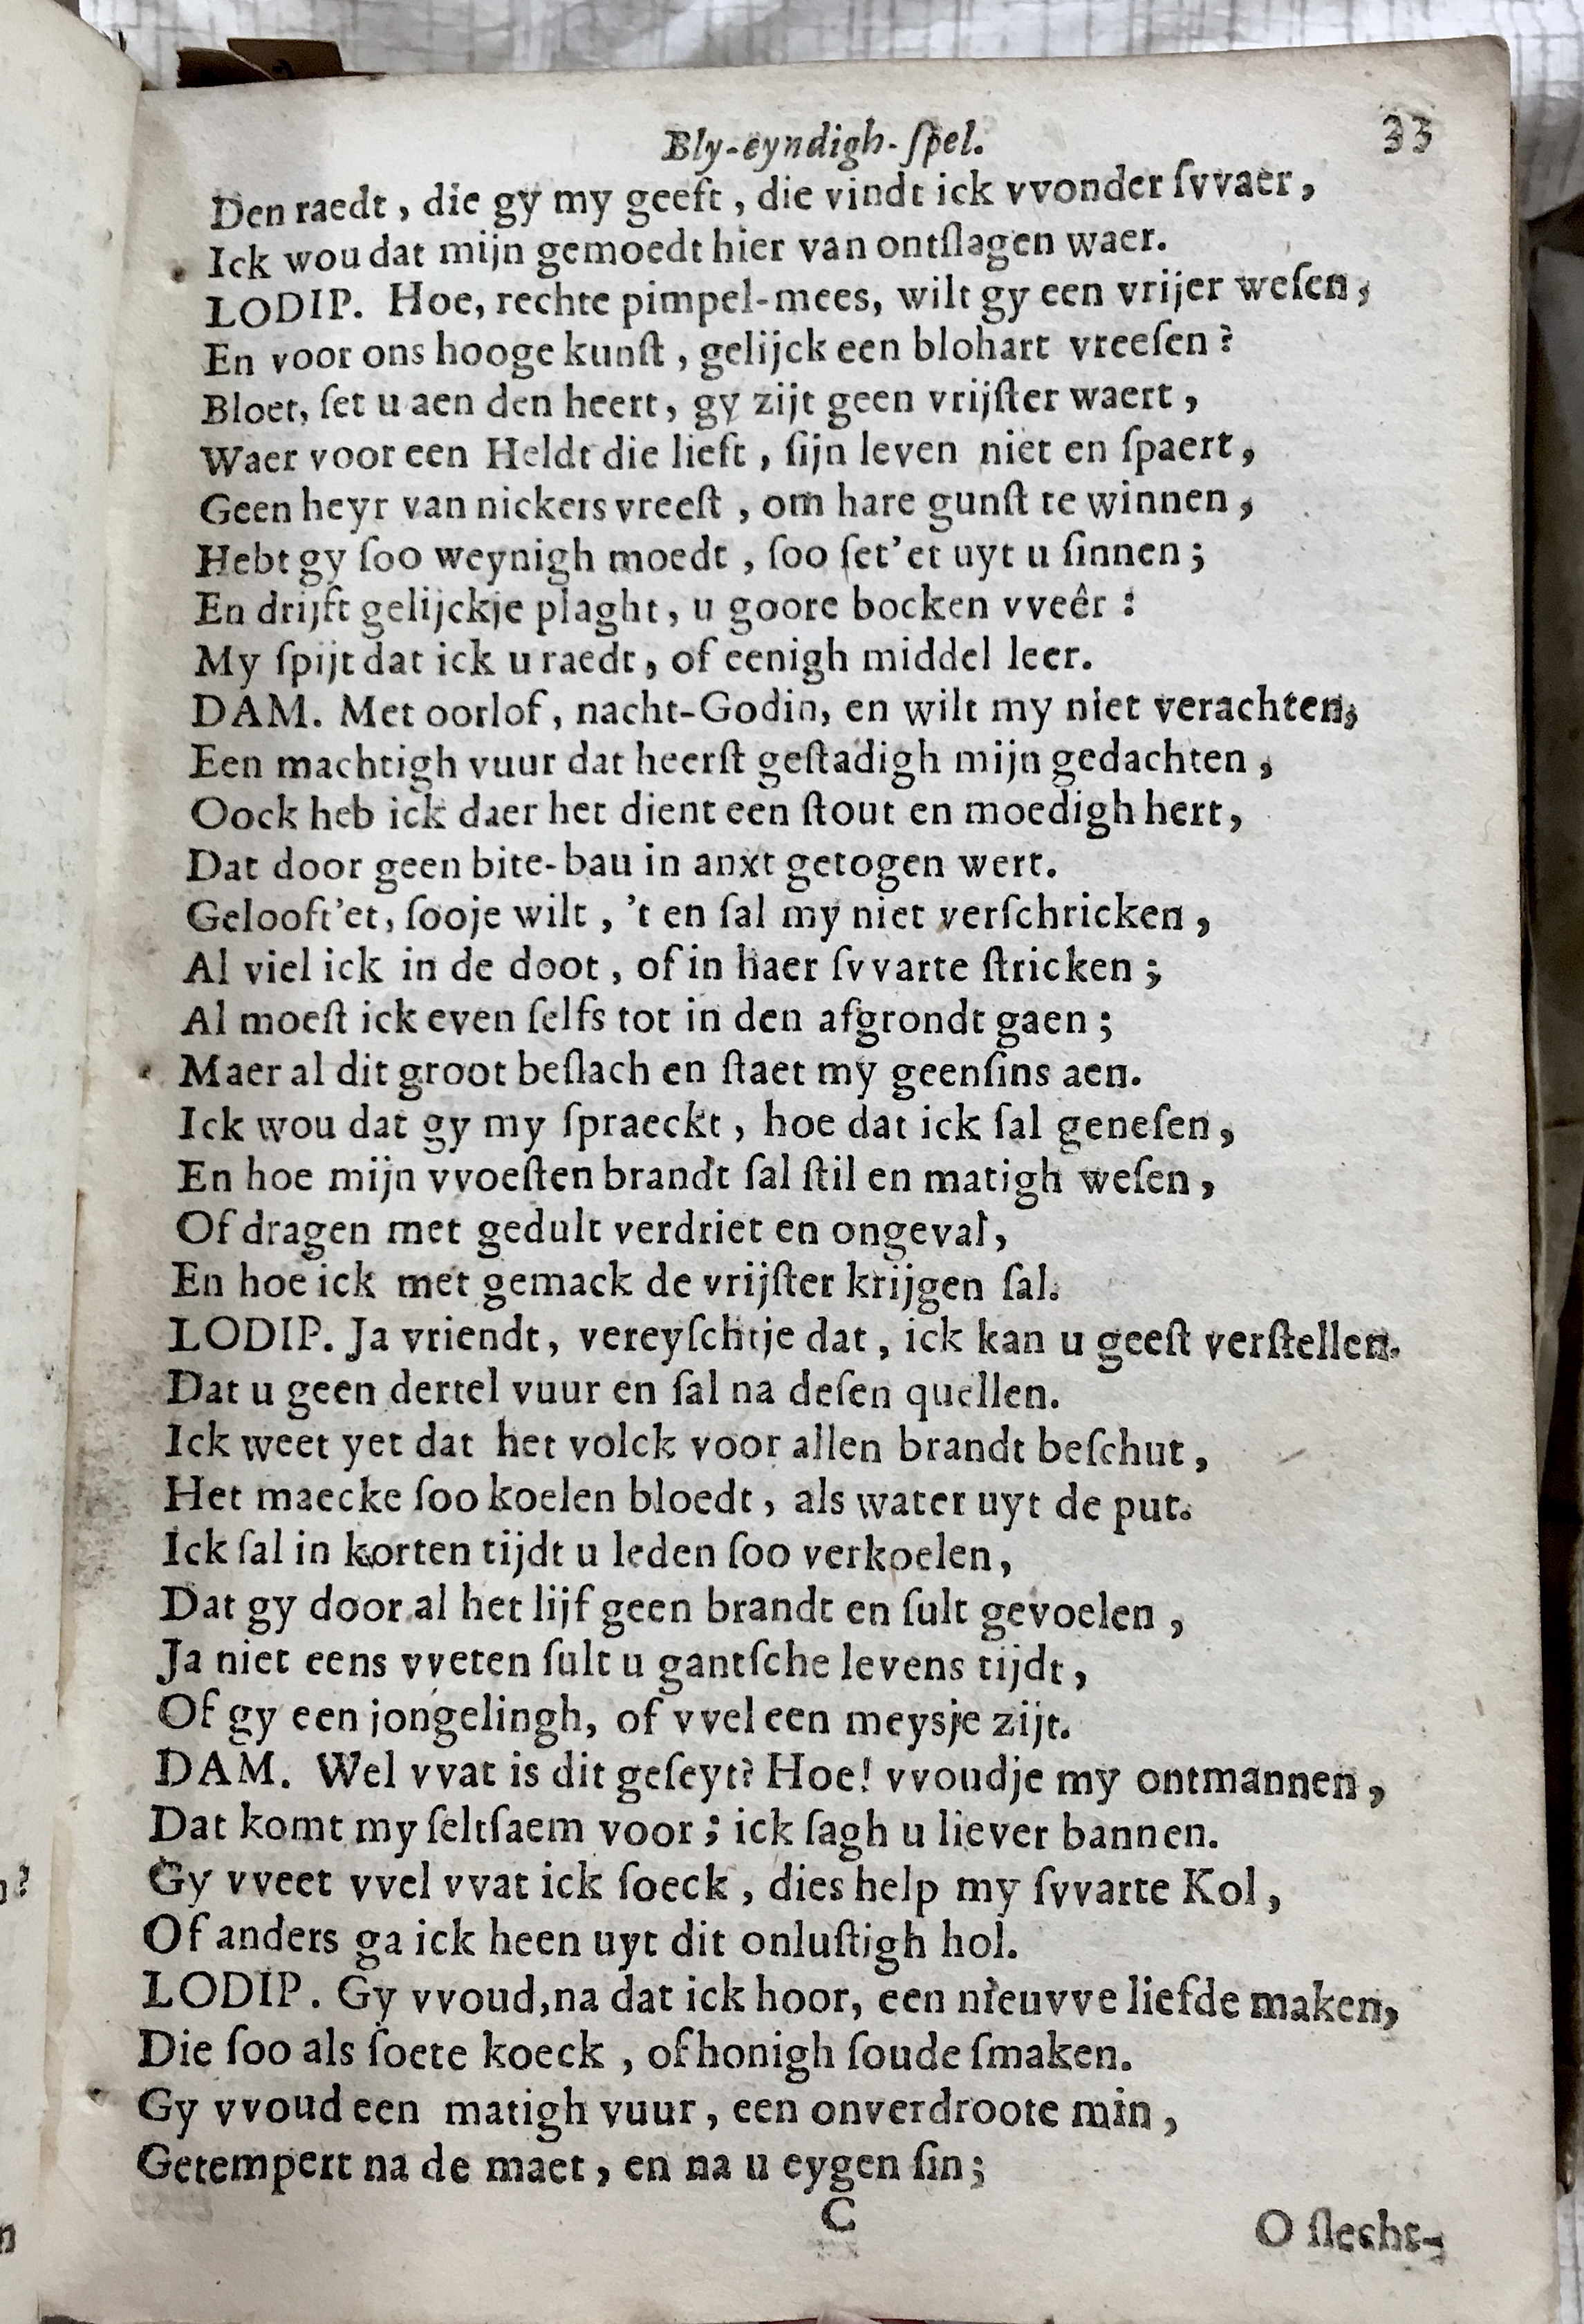 Bly-eyndigh-ſpel. 33
Den raedt, die gy my geeft, die vindt ick vvonder ſvvaer,
Ick wou dat mijn gemoedt hier van ontſlagen waer.
LODIP. Hoe, rechte pimpel-mees, wilt gy een vrijer weſen,
En voor ons hooge kunſt, gelijck een blohart vreeſen?
Bloet, ſet u aen den heert, gy zijt geen vrijſter waert,
Waer voor een Heldt die lieft, ſijn leven niet en ſpaert,
Geen heyr van nickers vreeſt, om hare gunſt te winnen,
Hebt gy ſoo weynigh moedt, ſoo ſet'et uyt u ſinnen;
En drijft gelijckje plaght, u goore bocken vveêr:
My ſpijt dat ick u raedt, of eenigh middel leer.
DAM. Met oorlof, nacht-Godin, en wilt my niet verachten,
Een machtigh vuur dat heerſt geſtadigh mijn gedachten,
Oock heb ick daer het dient een ſtout en moedigh hert,
Dat door geen bite-bau in anxt getogen wert.
Gelooft'et, ſooje wilt, 't en ſal my niet verſchricken,
Al viel ick in de doot, of in haer ſvvarte ſtricken;
Al moeſt ick even ſelfs tot in den afgrondt gaen;
Maer al dit groot beſlach en ſtaet my geenſins aen.
Ick wou dat gy my ſpraeckt, hoe dat ick ſal geneſen,
En hoe mijn vvoeſten brandt ſal ſtil en matigh weſen,
Of dragen met gedult verdriet en ongeval,
En hoe ick met gemack de vrijſter krijgen ſal.
LODIP. Ja vriendt, vereyſchtje dat, ick kan u geeſt verſtellen.
Dat u geen dertel vuur en ſal na deſen quellen.
Ick weet yet dat het volck voor allen brandt beſchut,
Het maecke ſoo koelen bloedt, als water uyt de put.
Ick ſal in korten tijdt u leden ſoo verkoelen,
Dat gy door al het lijf geen brandt en ſult gevoelen,
Ja niet eens vveten ſult u gantſche levens tijdt,
Of gy een jongelingh, of vvel een meysje zijt.
DAM. Wel vvat is dit geſeyt? Hoe! vvoudje my ontmannen,
Dat komt my ſeltſaem voor; ick ſagh u liever bannen.
Gy vveet vvel vvat ick ſoeck, dies help my ſvvarte Kol,
Of anders ga ick heen uyt dit onluſtigh hol.
LODIP. Gy vvoud, na dat ick hoor, een nieuvve liefde maken,
Die ſoo als ſoete koeck, of honigh ſoude ſmaken.
Gy vvoud een matigh vuur, een onverdroote min,
Getempert na de maet, en na u eygen ſin;
C
O ſlecht-